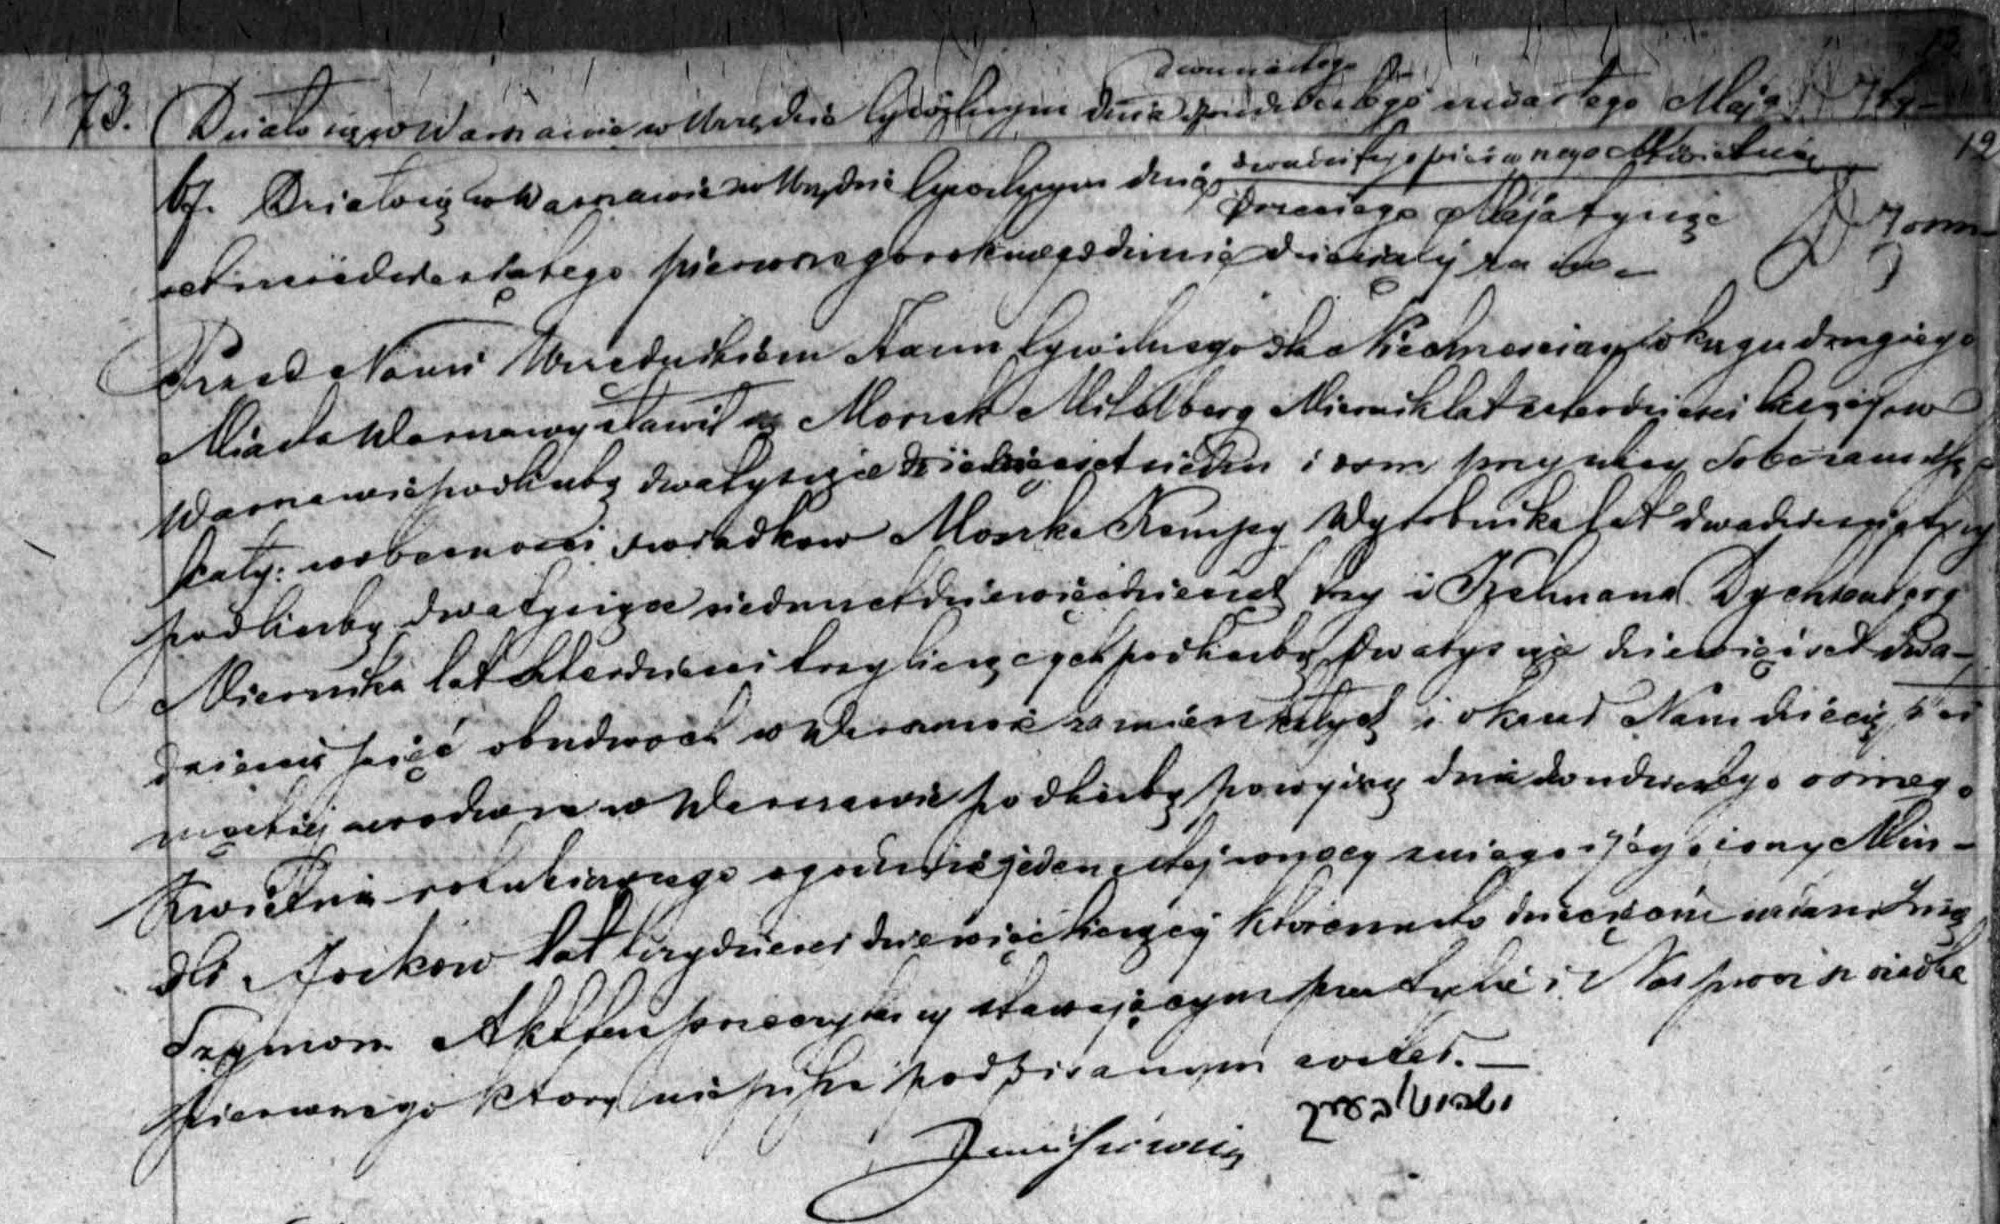 dwunastego
73. Działo się w Warszawie w Urzędzie Cywilnym dnia czwartego Maja
dwudziestego pierwszego Kwietnia
Działo się w Warszawie w Urzędzie Cywilnym dnia trzeciego Maja tysiąc
ośmset sześćdziesiątego pierwszego roku o godzinie dziewiątej rano
Przed Nami Urzędnikiem Stanu Cywilnego dla Niechrześcian okręgu drugiego
Miasta Warszawy stawił się Moszek Mildberg Miernik lat czterdzieści liczący w
Warszawie pod liczbą dwa tysiące i ośm przy ulicy
w obecności świadków Moszka Kempy Wyrobnika lat dwadzieścia trzy
pod liczbą dwa tysiące siedmset dziewięćdziesiąt trzy i Kelmana
Miernika lat czterdzieści trzy liczących pod liczbą dwa tysiące dziewięćset dwa-
dzieścia pięć obudwóch w Warszawie zamieszkałych i okazał Nam dziecię płci
męskiej urodzone w Warszawie pod liczbą powyższą dnia dwudziestego ósmego
Kwietnia roku bieżącego o godzinie jedenastej w nocy z niego i jego żony Min-
dli Joskow lat trzydzieści dziewięć liczącej któremu to dziecięciu nadano Imię
Szymon Akt ten przeczytany stawającym przez tychże i Nas prócz świadka
pierwszego który nie pisze podpisanym został.